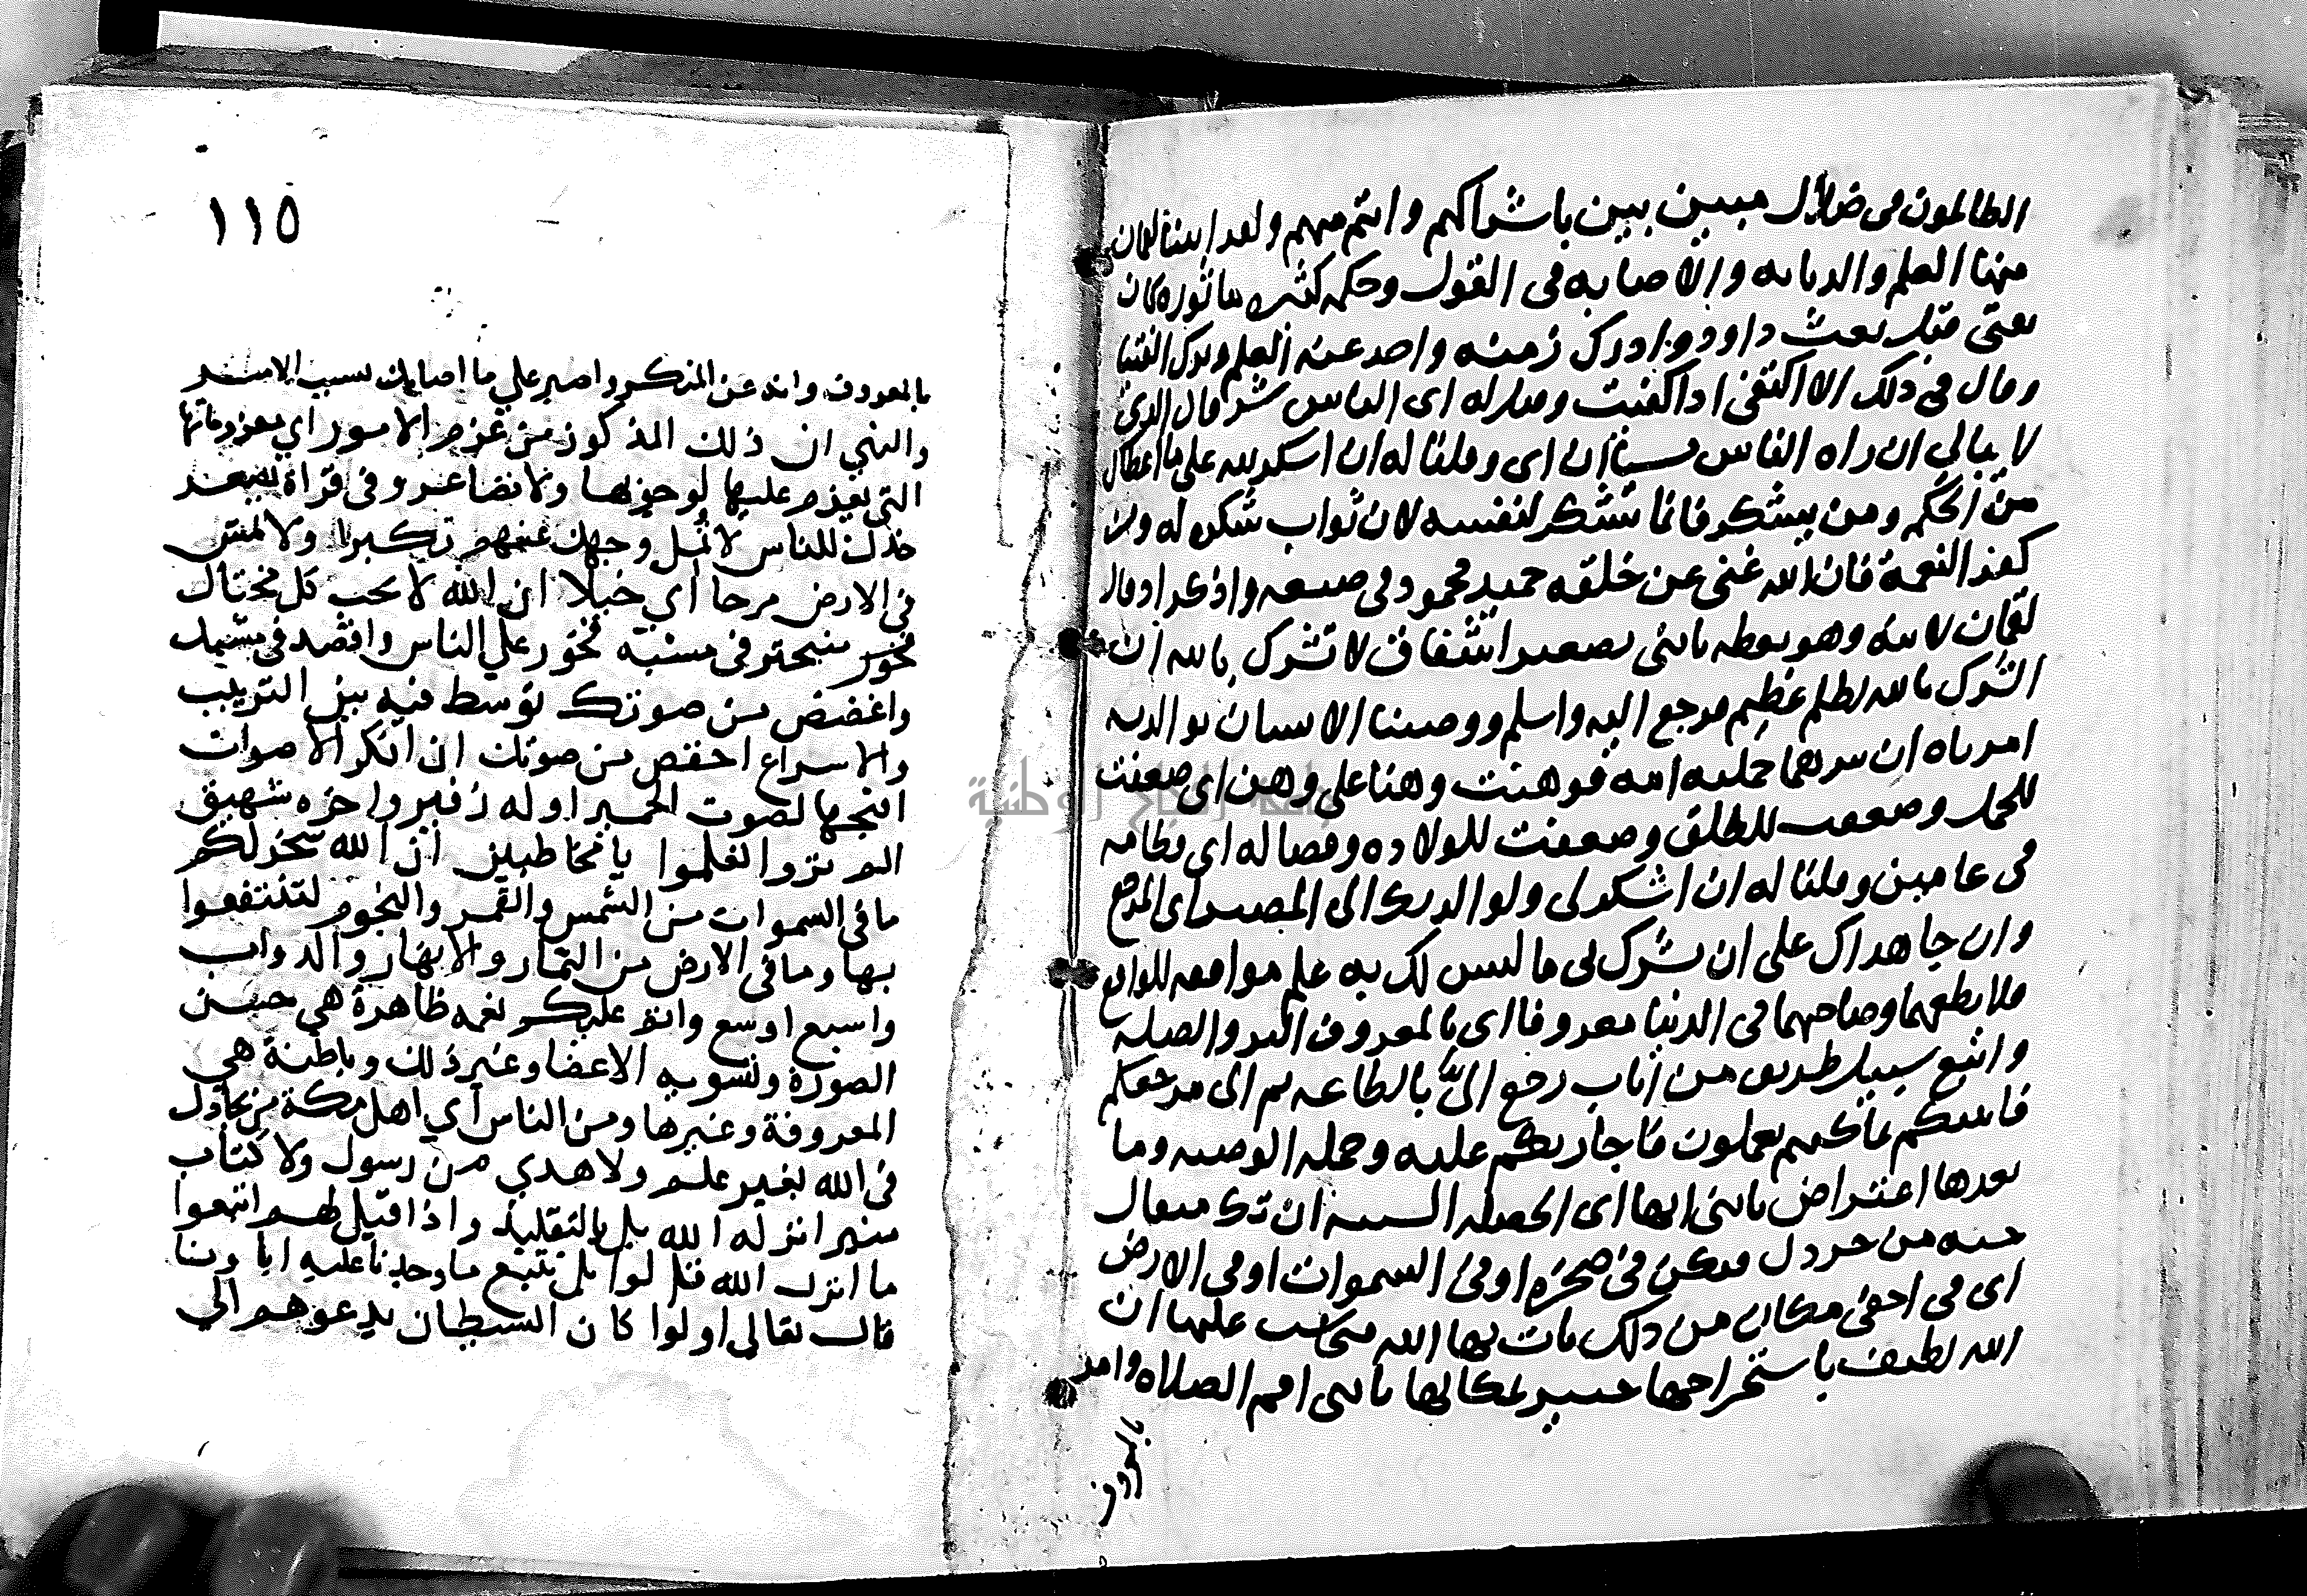 الظالمون فى ضلال مبين بيين باشراكهم وانتم منهم ولقد اتينا لقمان
منها العلم والديانه والاصابه فى القول وحكمه كثيره ماثوره كان
يفتى قبل بعث داود وادرك زمنه واخذ عنه العلم وترك الفتيا
وقال فى ذلك الا اكتفى اذا كفيت وقيل له اى الناس شر قال الذى
لا يبالى ان راه الناس مسيا ان اى وقلنا له ان اشكر لله على ما اعطاك
من الحكم ومن يشكر فانما يشكر لنفسه لان ثواب شكره له ومن
كفر النعمة فان الله غنى عن خلقه حميد محمود فى صنعه واذكر اذ قال
لقمان لابنه وهو يعظه يابنى تصغير اشفاق لا تشرك بالله ان
الشرك بالله لظلم عظيم فرجع اليه واسلم ووصينا الانسان بوالديه
امرناه ان يبرهما حملته امه فوهنت وهنا على وهن اى ضعفت
للحمل وضعفت للطلق وضعفت للولاده وفصاله اى فطامه
فى عامين وقلنا له ان اشكر لى ولوالديك الى المصير اى المرجع
وان جاهداك على ان تشرك بى ما ليس لك به علم موافقه للواقع
فلا تطعهما وصاحبهما فى الدنيا معروفا اى بالمعروف البر والصله
واتبع سبيل طريق من اناب رجع الىّ بالطاعه ثم الى مرجعكم
فانبيكم بما كنتم تعملون فاجازيكم عليه وجمله الوصيه وما
بعدها اعتراض يابنى انها اى الخصله السييه ان تك مثقال
حبه من خردل فتكن فى صخره او فى السموات او فى الارض
اى فى اخفى مكان من ذلك يات بها الله فيحاسب عليها ان
الله لطيف باستخراجها خبير بمكانها يابنى اقم الصلاه وامر
بالمعروف
١١٥
بالمعروف وانه عن المنكر واصبر علي ما اصابك بسبب الامر
والنهي ان ذلك المذكور من عزم الامور اي معزوماتها
التى يعزم عليها لوجوبها ولا تصاعر وفى قراة تصعر
خدك للناس لا تمل وجهك عنهم تكبرا ولا تمش
فى الارض مرحا اي خيلا ان الله لا يحب كل مختال
فخور متبختر فى مشيه فخور علي الناس واقصد فى مشيك
واغضض من صوتك توسط فيه بين الدبيب
والاسراع اخفض من صوتك ان انكر الاصوات
اقبحها لصوت الحمير اوله زفير واخره شهيق
الم تروا تعلموا يا مخاطبين ان الله سخر لكم
ما فى السموات من الشمس والقمر والنجوم لتنتفعوا
بها وما فى الارض من الثمار والانهار والدواب
واسبغ اوسع واتم عليكم نعمه ظاهرة هي حسن
الصورة وتسويه الاعضا وغير ذلك وباطنة هي
المعروفة وغيرها ومن الناس اي اهل مكة من يجادل
فى الله بغير علم ولا هدي من رسول ولا كتاب
منير انزله الله بل بالتقليد واذا قيل لهم اتبعوا
ما انزل الله قالوا بل نتبع ما وجدنا عليه اباونا
قال تعالى اولوا كان الشيطان يدعوهم الي